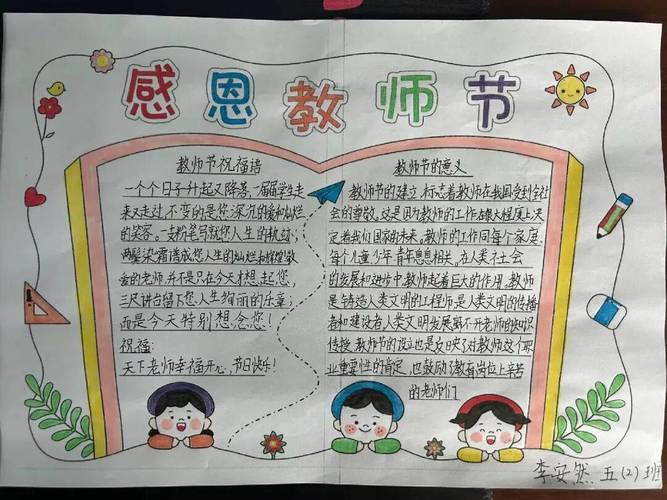 感恩教师节
教师节祝福语
一个个日子升起又降落,一届届学生走
来又走过,不变的是您深沉的爱和灿烂
的笑容。一支粉笔写就您人生的轨迹,
两鬓染霜谱成您人生的灿烂和辉煌敬
爱的老师,并不是只在今天才想起您,
三尺讲台留下您人生绚丽的乐章,
而是今天特别想念您!
祝福:
天下老师幸福开心,节日快乐!
教师节的意义
教师节的建立,标志着教师在我国受到全社
会的尊敬。这是因为教师的工作在很大程度上决
定着我们国家的未来。教师的工作同每个家庭、
每个儿童少年、青年息息相关。在人类社会
的发展和进步中,教师起着巨大的作用。教师
是铸造人类文明的工程师是人类文明的传播
者和建设者,人类文明发展离不开老师的知识
传授。教师节的设立也是反映了对教师这个职
业重要性的肯定,也鼓励了教育岗位上辛苦
的老师们
李安然 五(2)班